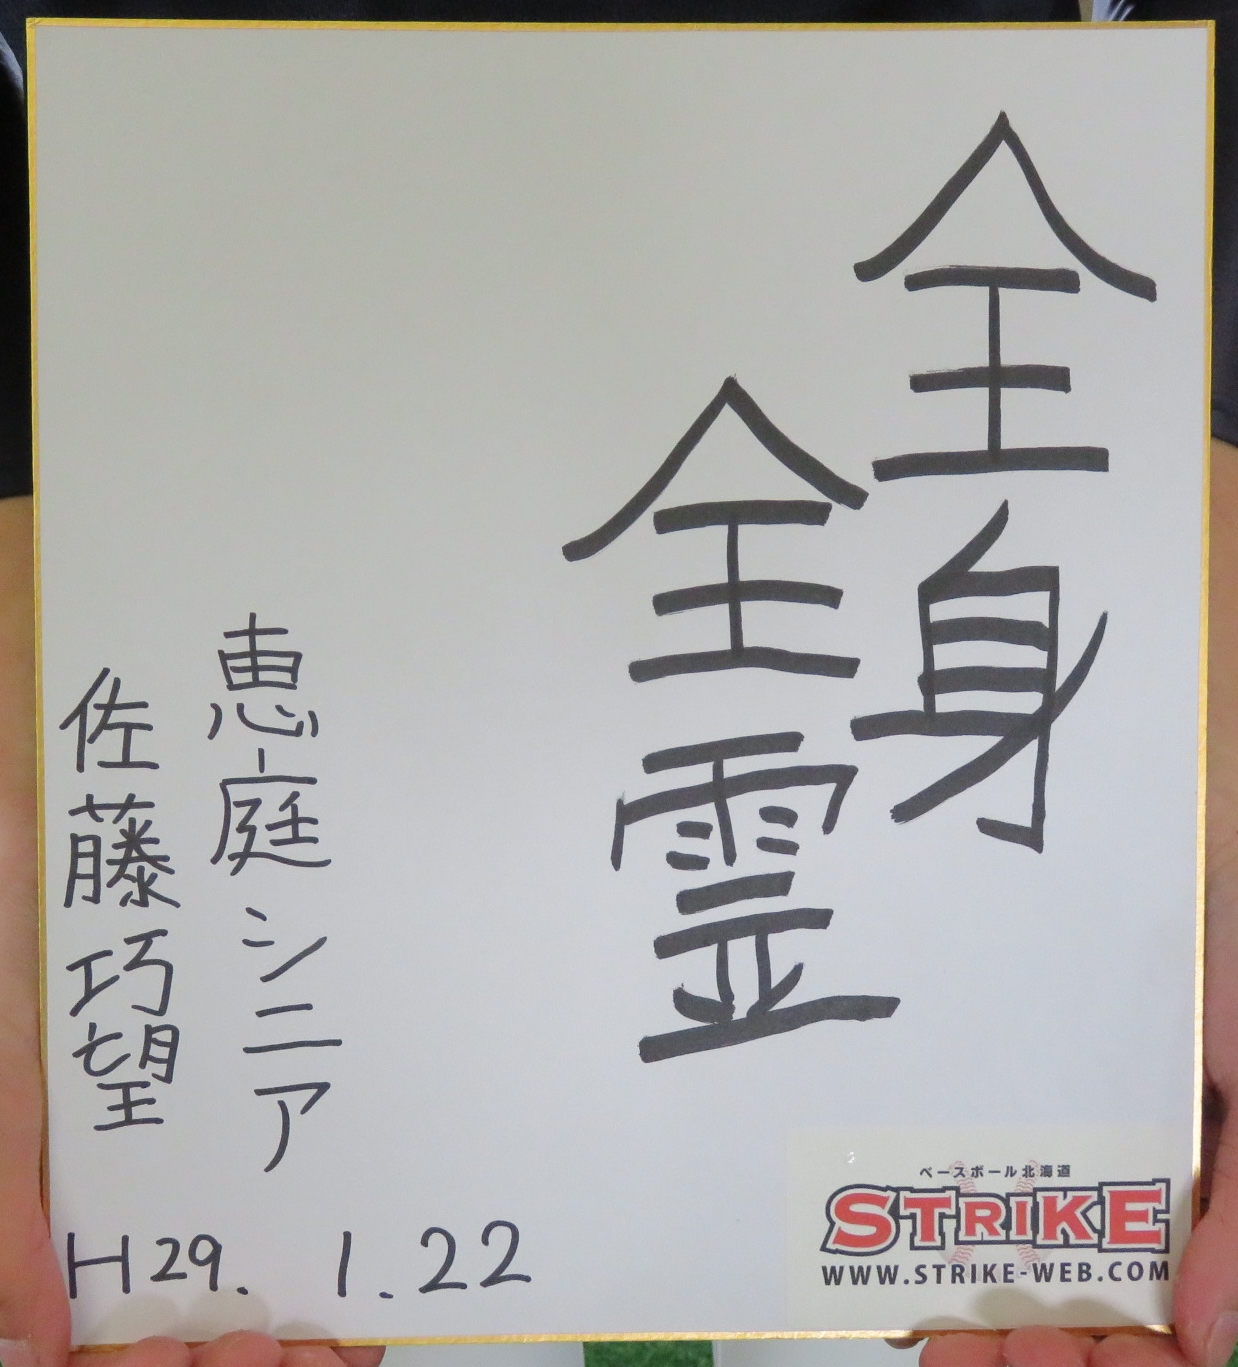 全身
全霊
恵庭シニア
佐藤巧望
H29. 1.22
ベースボール北海道
STRIKE
WWW.STRIKE-WEB.COM